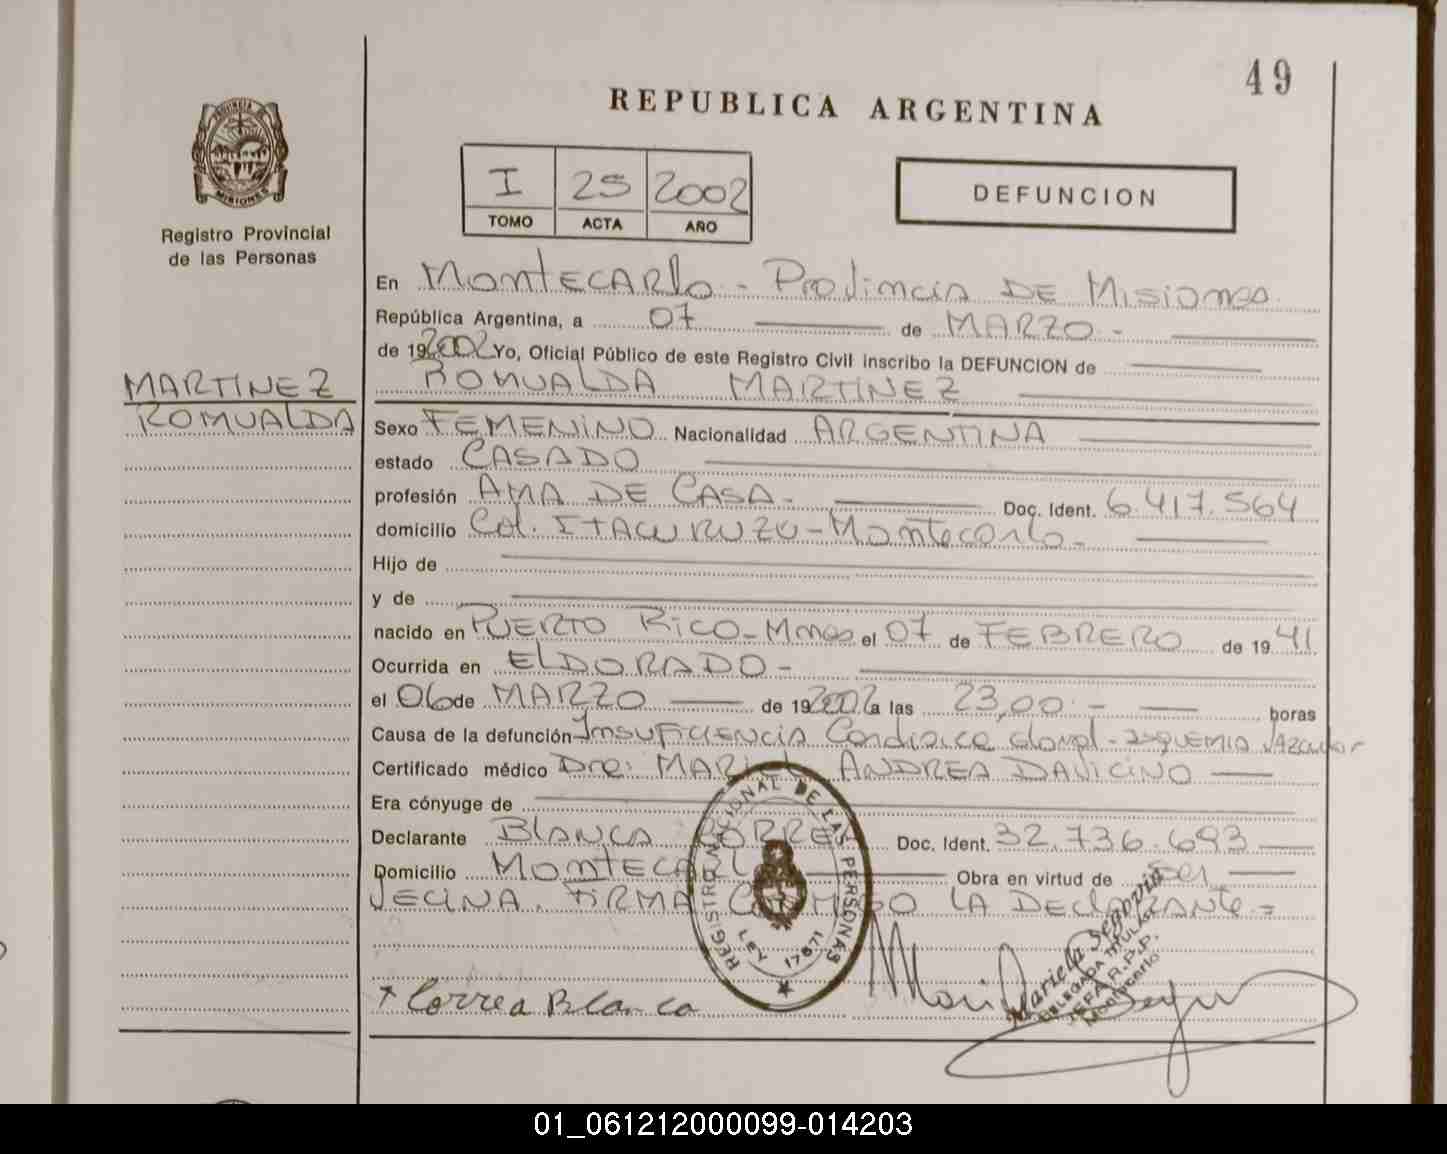 49
REPUBLICA ARGENTINA
PROVINCIA DE
MISIONES
Registro Provincial
de las Personas
I 25 2002
TOMO ACTA AÑO
DEFUNCION
En MONTECARlo - Provincia DE Misiones
República Argentina, a 07 de MARZO -
de 192002 Yo, Oficial Público de este Registro Civil inscribo la DEFUNCION de
ROMUALDA MARTINEZ
MARTINEZ
ROMUALDA
Sexo FEMENINO Nacionalidad ARGENTINA
estado CASADO
profesión AMA DE CASA - Doc. Ident. 6.417.564
domicilio Col. ITACURUZU - Montecarlo -
Hijo de
y de
nacido en PUERTO RICO - Mnes el 07 de FEBRERO de 1941
Ocurrida en ElDORADO -
el 06 de MARZO de 192002 a las 23,00 - horas
Causa de la defunción Insuficiencia Cardiaca Global -
Certificado médico Dra: MARIEL ANDREA DAVICINO
Era cónyuge de
Declarante BlANCA CORREA Doc. Ident. 32.736.693
Domicilio MONTECARLO Obra en virtud de Ser
VECINA. FIRMA CONMIGO LA DEClARANTE =
REGISTRO NACIONAL DE LAS PERSONAS
LEY 17671
x Correa Blanca
Mariela Segovia
DELEGADA TITULAR
R.P.P.
Montecarlo
01_061212000099-014203